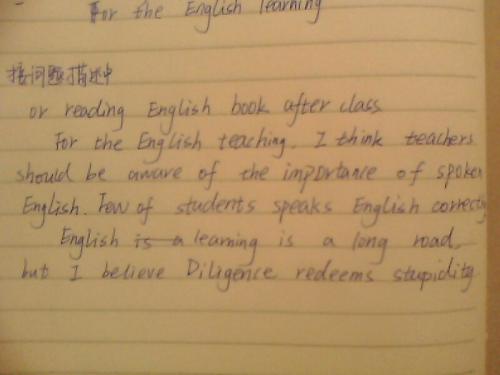 For the English learning
接问题描述中
or reading English book after class
For the English teaching. I think teachers
should be aware of the importance of spoken
English. Few of students speaks English correctly
English is a learning is a long road,
but I believe Diligence redeems stupidity